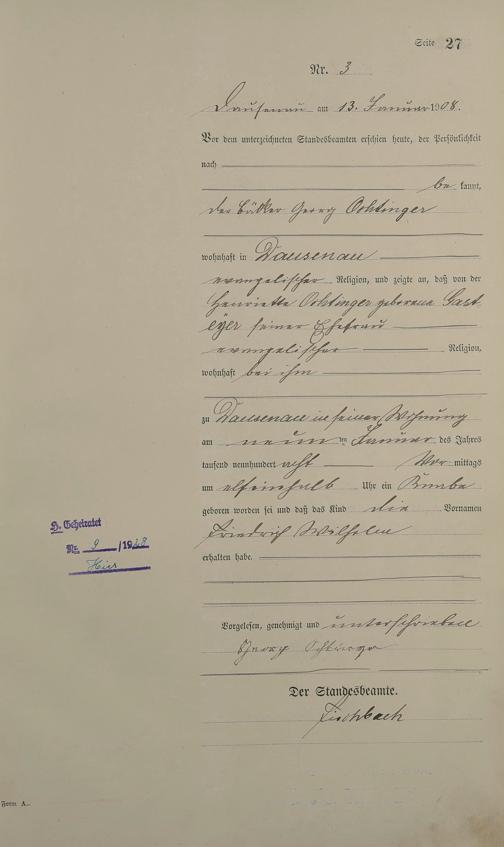 Seite 27
Nr. 3
Dausenau am 13. Januar 1908.
Vor dem unterzeichneten Standesbeamten erschien heute, der Persönlichkeit
nach
be kannt,
der Bäcker Georg Ochtinger
wohnhaft in Dausenau
evangelischer Religion, und zeigte an, daß von der
Henriette Ochtinger geborene Gast
eyer seiner Ehefrau
evangelischer Religion,
wohnhaft bei ihm
zu Dausenau in seiner Wohnung
am neunten Januar des Jahres
tausend neunhundert acht Vor mittags
um elfeinhalb Uhr ein Knabe
geboren worden sei und daß das Kind die Vornamen
Friedrich Wilhelm
erhalten habe.
Vorgelesen, genehmigt und unterschrieben
Georg Ochtinger
Der Standesbeamte.
Fischbach
H. Geheiratet
Nr. 9 /1928
Hier
Form A.